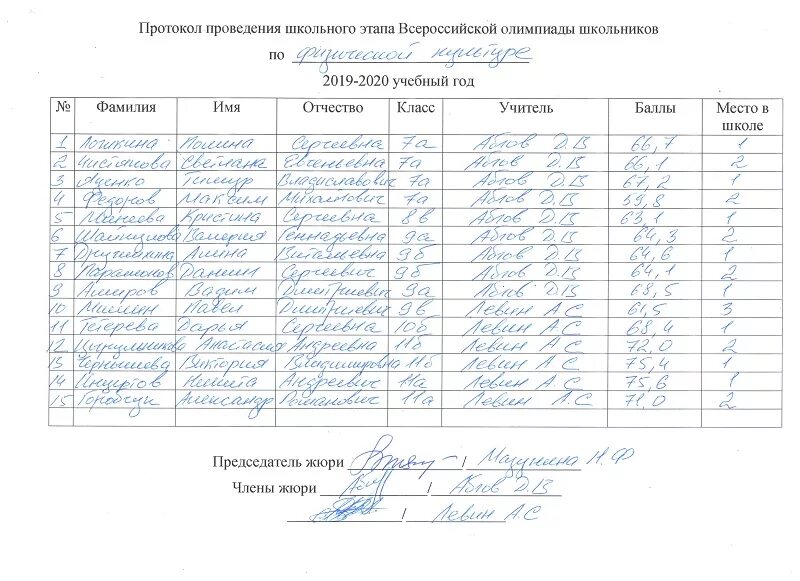 Протокол проведения школьного этапа Всероссийской олимпиады школьников
по физической культуре
2019-2020 учебный год
№ Фамилия Имя Отчество Класс Учитель Баллы Место в школе
1 Логикина Полина Сергеевна 7а Аблов Д.В 66,7 1
2 Чистякова Светлана Евгеньевна 7а Аблов Д.В 66,1 2
3 Яценко Тимур Владиславович 7а Аблов Д.В 67,2 1
4 Федонов Максим Михайлович 7а Аблов Д.В 59,8 2
5 Минеева Кристина Сергеевна 8в Аблов Д.В 63,1 1
6 Валерия Геннадьевна 9а Аблов Д.В 64,3 2
7 Дружинкина Алина Витальевна 9б Аблов Д.В 64,6 1
8 Парамонов Даниил Сергеевич 9б Аблов Д.В 64,1 2
9 Амиров Вадим Дмитриевич 9а Аблов Д.В 68,5 1
10 Павел Дмитриевич 9в Левин А С 61,5 3
11 Тетерева Дарья Сергеевна 10б Левин А С 68,4 1
12 Цирулникова Анастасия Андреевна 11б Левин А С 72,0 2
13 Чернышева Виктория Владимировна 11б Левин А С 75,4 1
14 Никита Андреевич 11а Левин А С 75,6 1
15 Горобчук Александр Романович 11а Левин А.С 71,0 2
Председатель жюри / Мазунина Н.Ф
Члены жюри / Аблов Д.В
/ Левин А.С